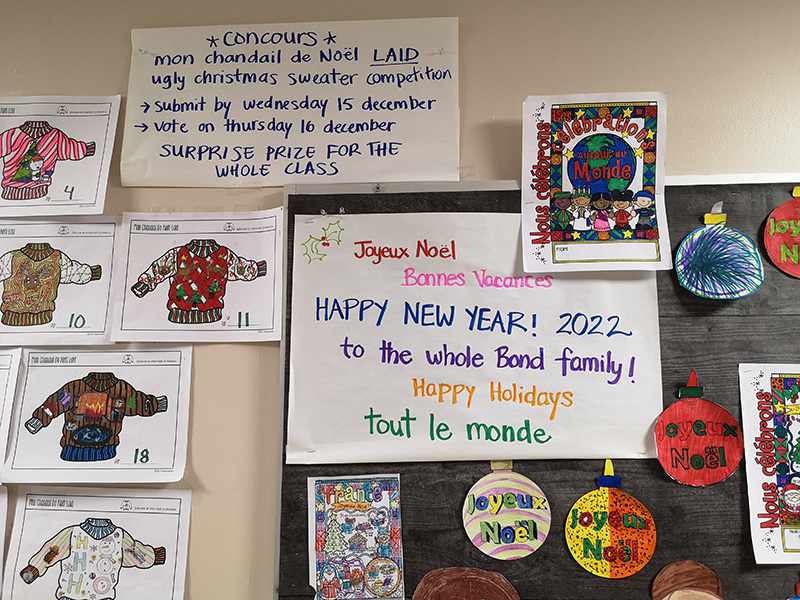 *Concours*
mon chandail de Noël LAID
ugly christmas sweater competition
→ submit by wednesday 15 december
→ vote on thursday 16 december
SURPRISE PRIZE FOR THE
WHOLE CLASS
4
10
Mon Chandail De Noël Laid
11
Mon Chandail De Noël Laid
18
Mon Chandail De Noël Laid
HO
Nous célébrons
Les
célébrations
Autour du
Monde
NOM
Joyeux Noël
Bonnes Vacances
HAPPY NEW YEAR! 2022
to the whole Bond family!
Happy Holidays
tout le monde
Joyeux
Noël
Joyeux
Noël
Nous célébrons
France
Joyeux Noël
Joyeux
Noël
Joyeux
Noël